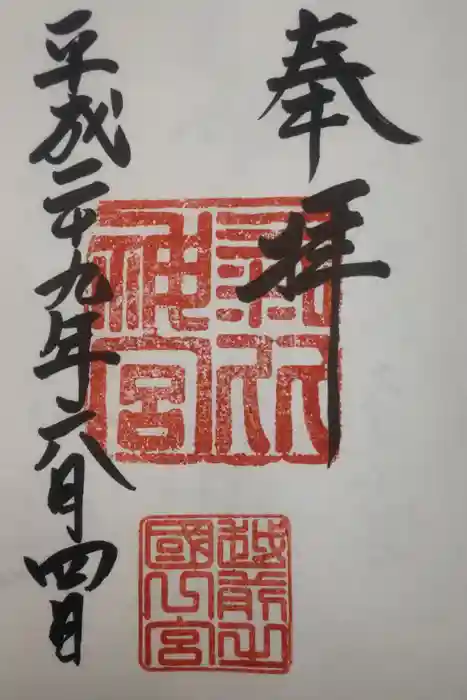 奉拝
氣比
神宮
越前之
國一宮
平成二十九年八月四日